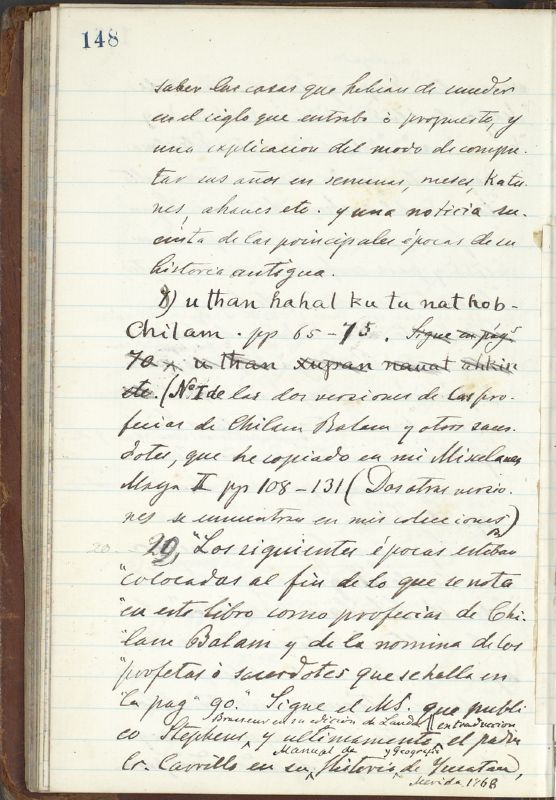 148
saber las cosas que habian de suceder
en el siglo que entraba ó propuesto, y
una explicacion del modo de compu-
tar sus años en semanas, meses, Katu-
nes, ahaues etc. y una noticia su-
cinta de las principales épocas de su
historia antigua.
8) u than hahal ku tu nat hob-
Chilam. pp 65-75. Sigue en pág.
70 x u than xupan nauat ahkin
etc. (No I de las dos versiones de las pro-
fecias de Chilam Balam y otros sacer-
dotes, que he copiado en mi Miscelanea
Maya II pp 108-131 (Dos otras versio-
nes se encuentran en mis colecciones)
20. 29, "Los siguientes épocas estaban
"colocadas al fin de lo que se nota
"en este libro como profecias de Chi-
"lam Balam y de la nomina de los
"profetas ó sacerdotes que se halla en
"la pag" 90." Sigue el MS. que publi
Brasseur en su edicion de Landa en traduccion
co Stephens, y ultimamente, el padre
Manual de y Geografia
Cr. Carrillo en su Historia de Yucatan,
Merida 1868